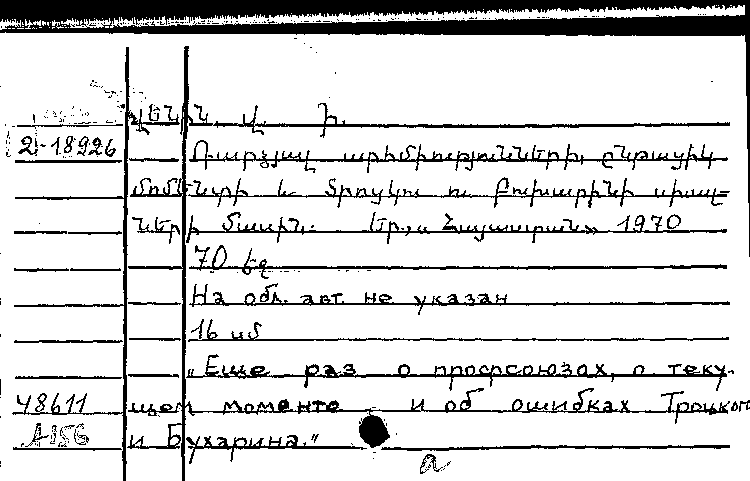 ԼԵՆԻՆ, Վ. Ի.
2-18926 Դարձյալ արհմիությունների, ընթացիկ
մոմենտի և Տրոցկու ու Բուխարինի սխալ-
ների մասին: Եր., «Հայաստան» 1970
70 էջ
На обл. авт. не указан
16 սմ
„Еще раз о профсоюзах, о теку-
48611 щем моменте и об ошибках Троцкого
A156 и Бухарина."
a